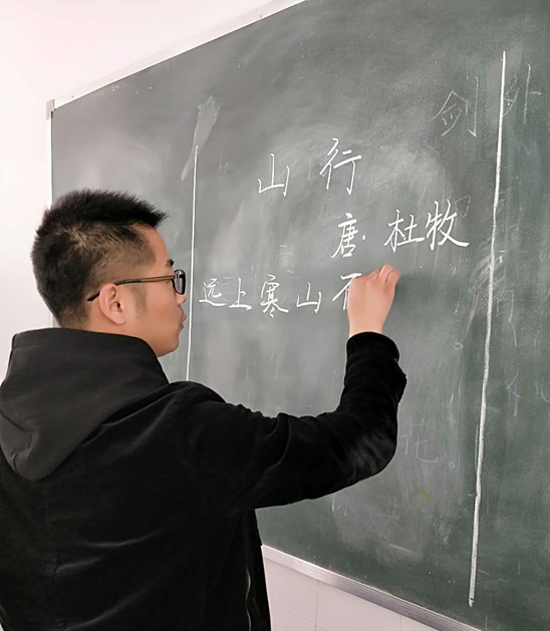 剑 外
山行
唐·杜牧
远上寒山